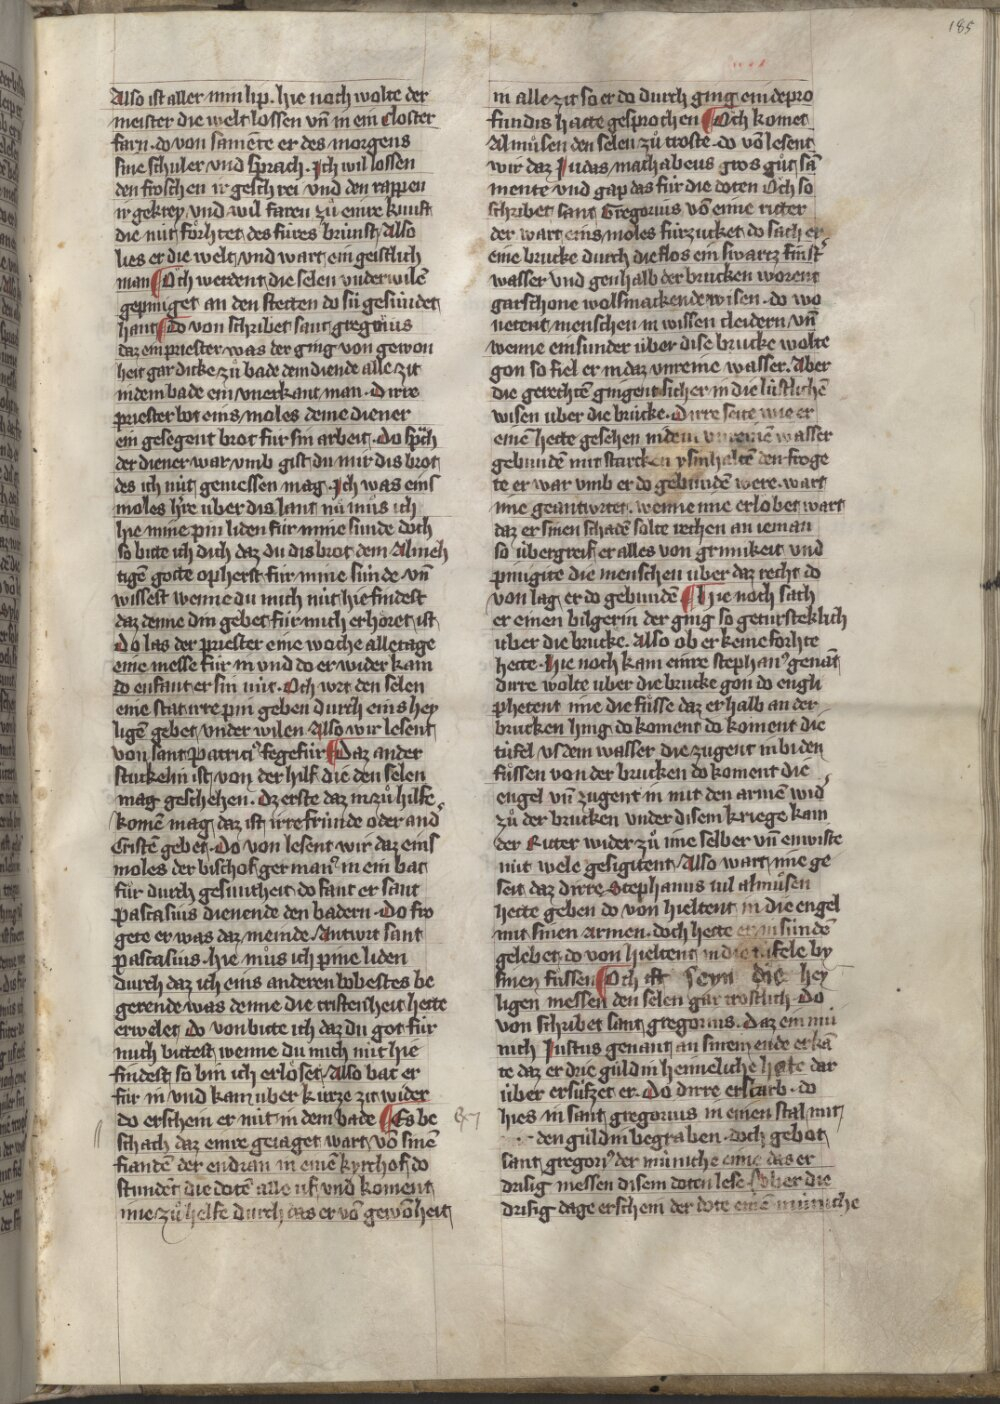 185
Also ist aller min lip. hie noch wolte der
meister die welt lossen vn̄ in ein closter
farn. do von samēte er des morgens
sine schuler vnd sprach. Ich wil lossen
den froschen ir geschrei vnd den rappen
ir gekrey vnd wil faren zuͦ einre kunst
die nut foͤrhtet des fures brunst. Also
lies er die welt vnd wart ein geistlich
man Och werdent die selen vnder wilē
gepiniget an den stetten do sú gesúndet
hant Do von schribet sant gregorius
daz ein priester was der ging von gewon
heit gar dicke zuͦ bade dem diende alle zit
in dem bade ein vnerkant man. Dirre
priester bot eins moles deme diener
ein gesegent brot fur sin arbeit. Do spͣch
der diener war vmb gist du mir dis brot
des ich nút geniessen mag. Ich was eins
moles h're uber dis lant nuͦ muͦs ich
hie mine pin liden fúr mine sunde doch
so bitte ich dich daz du dis brot dem Almeh
tigē gotte opherst fúr mine súnde vn̄
wissest wenne du mich nút hie findest
daz denne din gebet fúr mich erhoͤret ist
Do las der priester eine woche alle tage
eine messe fúr in vnd do er wider kam
do enfant er sin nút. Och wrt den selen
eine stat irre pin geben durch eins hey
ligen gebet vnder wilen. Also wir lesent
von sant Patrici9 fegefúr Daz ander
stúckelin ist von der hilf die den selen
mag geschehen. Dz erste daz in zuͦ hilfe
komē mag daz ist irre frúnde oder and'
Cristē gebet. Do von lesent wir daz eins
moles der bischof german9 in ein bat
fuͦr durch gesuntheit do fant er sant
pascasius dienende den badern. Do fro
gete er was daz meinde. Antwrt sant
pascasius. hie mus ich pine liden
durch daz ich eins anderen bobestes be
gerende was denne die cristenheit hette
erwelet. Do von bitte ich daz du got fúr
mich bittest wenne du mich nút hie
findest so bin ich erloset. Also bat er
fúr in vnd kam uber kurze zit wider
do erschein er nút in dem bade Es be
schach daz einre geiaget wart vō sinē
fiandē der endran in einē kyrchof do
stundēt die dotē alle uf vnd koment
ime zuͦ helfe durch das er vō gewōheit
in alle zit so er do durch ging ein depro
fundis hatte gesprochen Och komet
Almuͦsen den selen zuͦ troste. do vō lesent
wir daz Judas machabeus gros guͦt sā
mente vnd gap das fúr die doten Och so
schribet sant Gregorius vō eine ritter
der wart eins moles fúrzucket do sach er
eine brucke durch die flos ein swartz finst'
wasser vnd genhalb der brucken worent
gar schone wolsmackende wisen. do wo
netent menschen in wissen cleidern vn̄
wenne ein sunder úber dise brucke wolte
gon so fiel er in daz vnreine wasser. Aber
die gerechtē gingent sicher in die lústlichē
wisen uber die brúcke. Dirre seite wie er
einē hette gesehen in dem vnreinē wasser
gebundē mit starcken ysinhaltē den froge
te er war vmb er do gebundē were. wart
ime geantwrtet. wenne ime erlobet wart
daz er sinen schadē solte rechen an ieman
so úbergreif er alles von grimikeit vnd
pinigite die menschen uber daz recht do
von lag er do gebundē hie noch sach
er einen bilgerin der ging so geturstcklich
uber die brucke. Also ob er keine forhte
hette. hie noch kam einre stephan9 genāt
dirre wolte uber die brucke gon do engli
phetent ime die fuͤsse daz er halb an der
brucken hing do koment do koment die
túfel vs dem wasser die zugent in bi den
fuͤssen von der brucken do koment die
engel vn̄ zugent in mit den armē wid'
zuͦ der brucken vnder disem kriege kam
der Ritter wider zuͦ ime selber vn̄ enwiste
nút wele gesigitent. Also wart ime ge
seit daz dirre Stephanus vil almuͦsen
hette geben do von hieltent in die engel
mit sinen armen. doch hette er in súndē
gelebet do von hieltent in die túfele by
sinen fuͤssen Och ist seyn die hey
ligen messen den selen gar trostlich. Do
von schribet sant gregorius. Daz ein mú
nich Justus genant an sinem ende erkā
te daz er drie gúldin heimeliche hate dar
úber ersufzet er. Do dirre erstarb. do
hies in sant gregorius in einen stal mit
den gúldin begraben. doch gebot
sant gregori9 der múniche eime das er
drisig messen disem doten lese. Uber die
drisig dage erschein der dote einē múniche